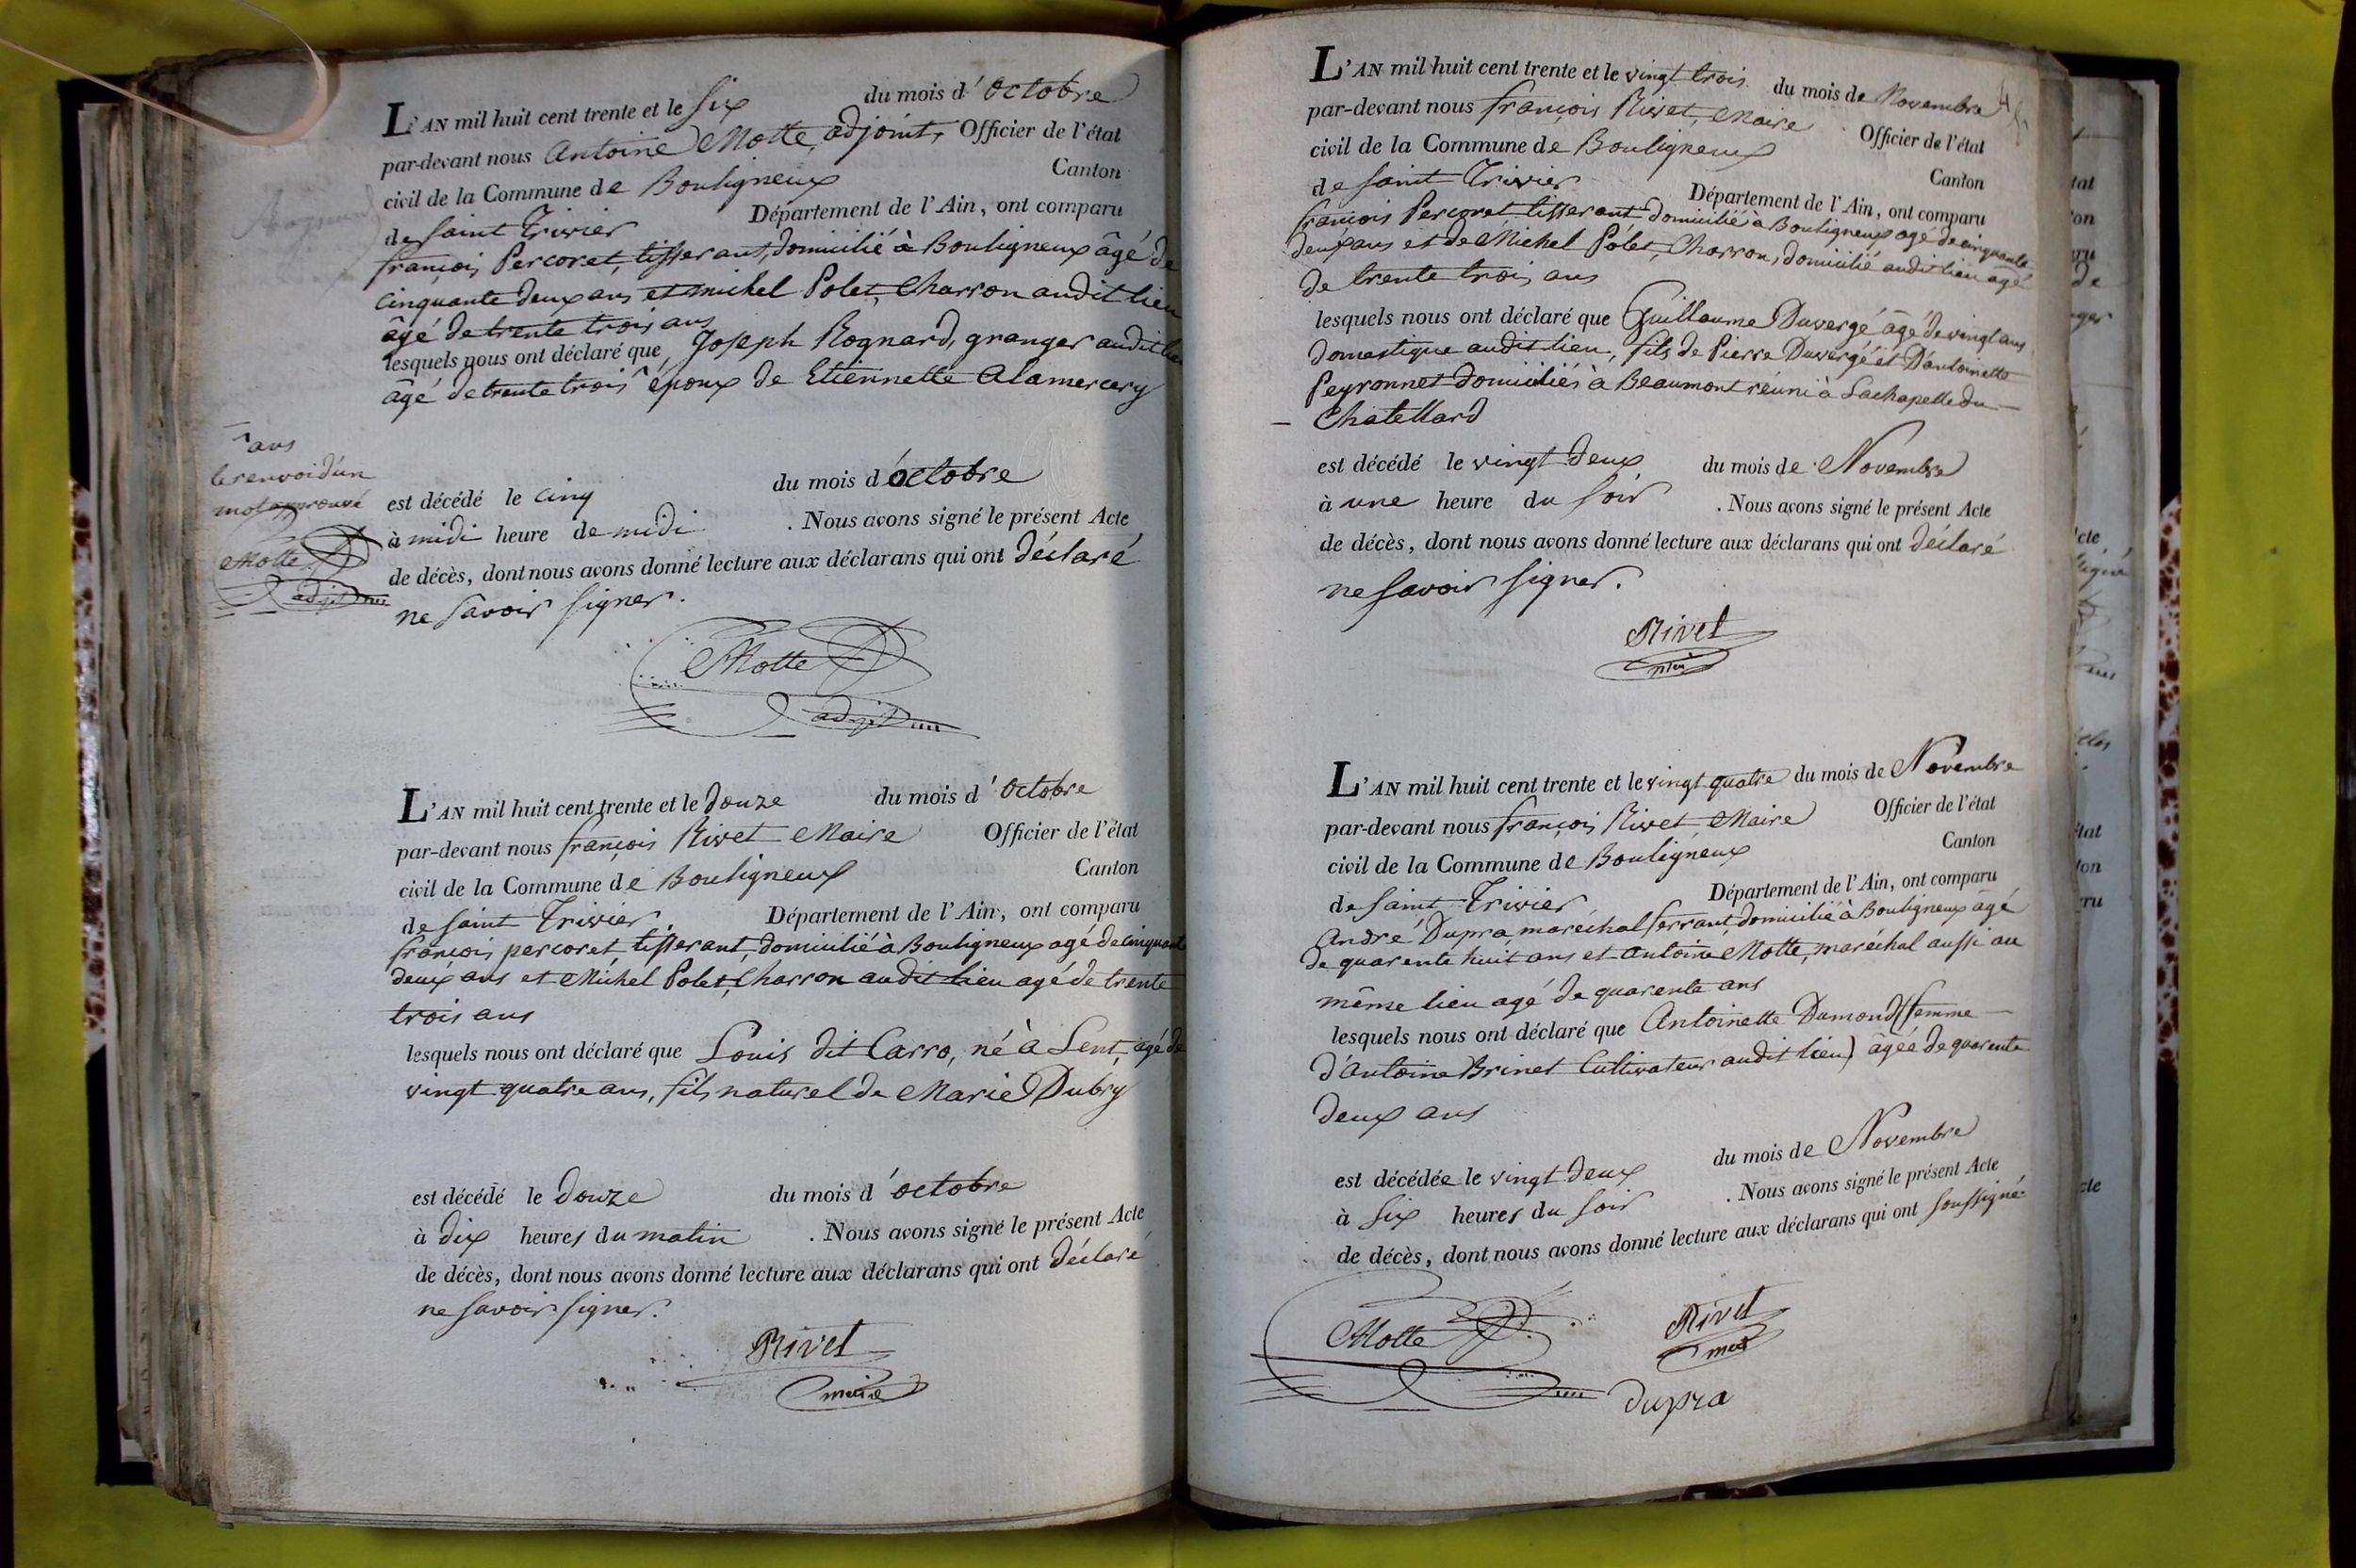 L'AN mil huit cent trente et le six du mois d'octobre
par-devant nous Antoine Motte, adjoint, Officier de l'état
civil de la Commune de Bouligneux Canton
de saint Trivier Département de l'Ain, ont comparu
françois Percoret, tisserant, domicilié à Bouligneux âgé de
cinquante deux ans et michel Polet, Charron audit lieu
âgé de trente trois ans
lesquels nous ont déclaré que Joseph Rognard, granger audit lieu
âgé de trente trois ^ époux de Etiennette Alamercery
^ ans
le renvoi d'un
mot approuvé
Motte
adjt
est décédé le cinq du mois d'octobre
à midi heure de midi . Nous avons signé le présent Acte
de décès, dont nous avons donné lecture aux déclarans qui ont déclaré
ne savoir signer.
Motte
adjt
L'AN mil huit cent trente et le douze du mois d'octobre
par-devant nous françois Rivet Maire Officier de l'état
civil de la Commune de Bouligneux Canton
de saint Trivier Département de l'Ain, ont comparu
françois percoret, tisserant, domicilié à Bouligneux agé de cinquante
deux ans et Michel Polet, Charron audit lieu agé de trente
trois ans
lesquels nous ont déclaré que Louis dit Carro, né à Lent, agé de
vingt quatre ans, fils naturel de Marie Dubry
est décédé le douze du mois d'octobre
à dix heures du matin . Nous avons signé le présent Acte
de décès, dont nous avons donné lecture aux déclarans qui ont déclaré
ne savoir signer.
Rivet
maire
L'AN mil huit cent trente et le vingt trois du mois de Novembre
par-devant nous françois Rivet, Maire Officier de l'état
civil de la Commune de Bouligneux Canton
de saint Trivier Département de l'Ain, ont comparu
françois Percoret tisserant domicilié à Bouligneux agé de cinquante
deux ans et de Michel Pólet, Charron, domicilié audit lieu agé
de trente trois ans
lesquels nous ont déclaré que Guillaume Duvergé âgé de vingt ans
domestique audit lieu, fils de Pierre Duvergé et D'antoinette
Peyronnet domiciliés à Beaumont réuni à Lachapelle du
Chatellard
est décédé le vingt deux du mois de Novembre
à une heure du soir . Nous avons signé le présent Acte
de décès, dont nous avons donné lecture aux déclarans qui ont déclaré
ne savoir signer.
Rivet
L'AN mil huit cent trente et le vingt quatre du mois de Novembre
par-devant nous françois Rivet, Maire Officier de l'état
civil de la Commune de Bouligneux Canton
de saint Trivier Département de l'Ain, ont comparu
André Dupra maréchal ferrant, domicilié à Bouligneux agé
de quarente huit ans et antoine Motte, maréchal aussi au
même lieu agé de quarente ans
lesquels nous ont déclaré que Antoinette Dumond (femme
d'antoine Brinet Cultivateur audit lieu) agée de quarente
deux ans
est décédée le vingt deux du mois de Novembre
à six heures du soir . Nous avons signé le présent Acte
de décès, dont nous avons donné lecture aux déclarans qui ont soussigné
Motte
Rivet
Dupra